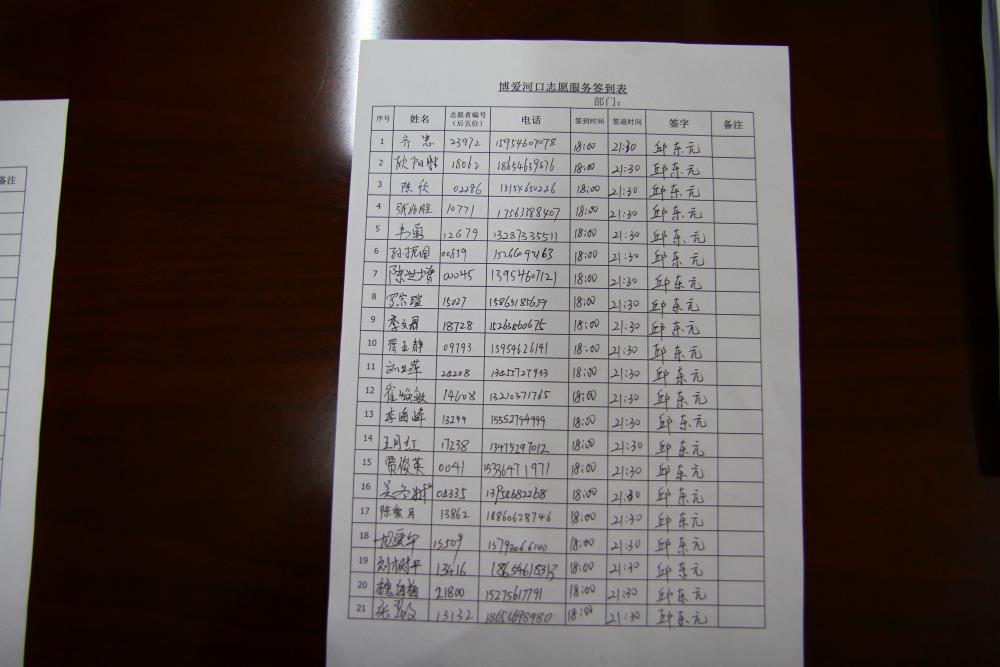 备注
博爱河口志愿服务签到表
部门：
序号 姓名 志愿者编号（后五位） 电话 签到时间 签退时间 签字 备注
1 齐忠 23972 15954607078 18:00 21:30 邱东元
2 欧阳胜 18062 18654639876 18:00 21:30 邱东元
3 陈欣 02286 15154650226 18:00 21:30 邱东元
4 张兆胜 10771 17563388407 18:00 21:30 邱东元
5 12679 13287335511 18:00 21:30 邱东元
6 孙振国 00839 15266092163 18:00 21:30 邱东元
7 00045 13954607121 18:00 21:30 邱东元
8 罗宗瑄 15027 15865185639 18:00 21:30 邱东元
9 李文君 18728 15263860675 18:00 21:30 邱东元
10 胥玉静 09793 13954626141 18:00 21:30 邱东元
11 24208 13455727933 18:00 21:30 邱东元
12 14608 13210371765 18:00 21:30 邱东元
13 李海峰 13299 15552794999 18:00 21:30 邱东元
14 王月红 17238 13475297012 18:00 21:30 邱东元
15 贾俊英 0041 15336471971 18:00 21:30 邱东元
16 04335 13954682268 18:00 21:30 邱东元
17 陈爱月 13862 18860628746 18:00 21:30 邱东元
18 15509 18:00 21:30 邱东元
19 刘树平 13416 18:00 21:30 邱东元
20 21800 15275617791 18:00 21:30 邱东元
21 13132 18653698980 18:00 21:30 邱东元